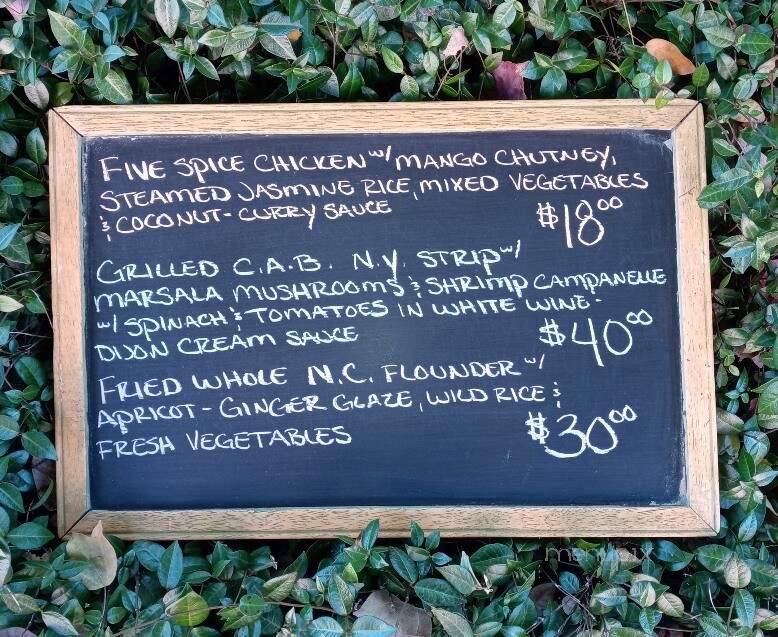 FIVE SPICE CHICKEN w/ MANGO CHUTNEY,
STEAMED JASMINE RICE, MIXED VEGETABLES
& COCONUT-CURRY SAUCE $18.00
GRILLED C.A.B. N.Y. STRIP w/
MARSALA MUSHROOMS & SHRIMP CAMPANELLE
w/ SPINACH & TOMATOES IN WHITE WINE-
DIJON CREAM SAUCE $40.00
FRIED WHOLE N.C. FLOUNDER w/
APRICOT-GINGER GLAZE, WILD RICE &
FRESH VEGETABLES $30.00